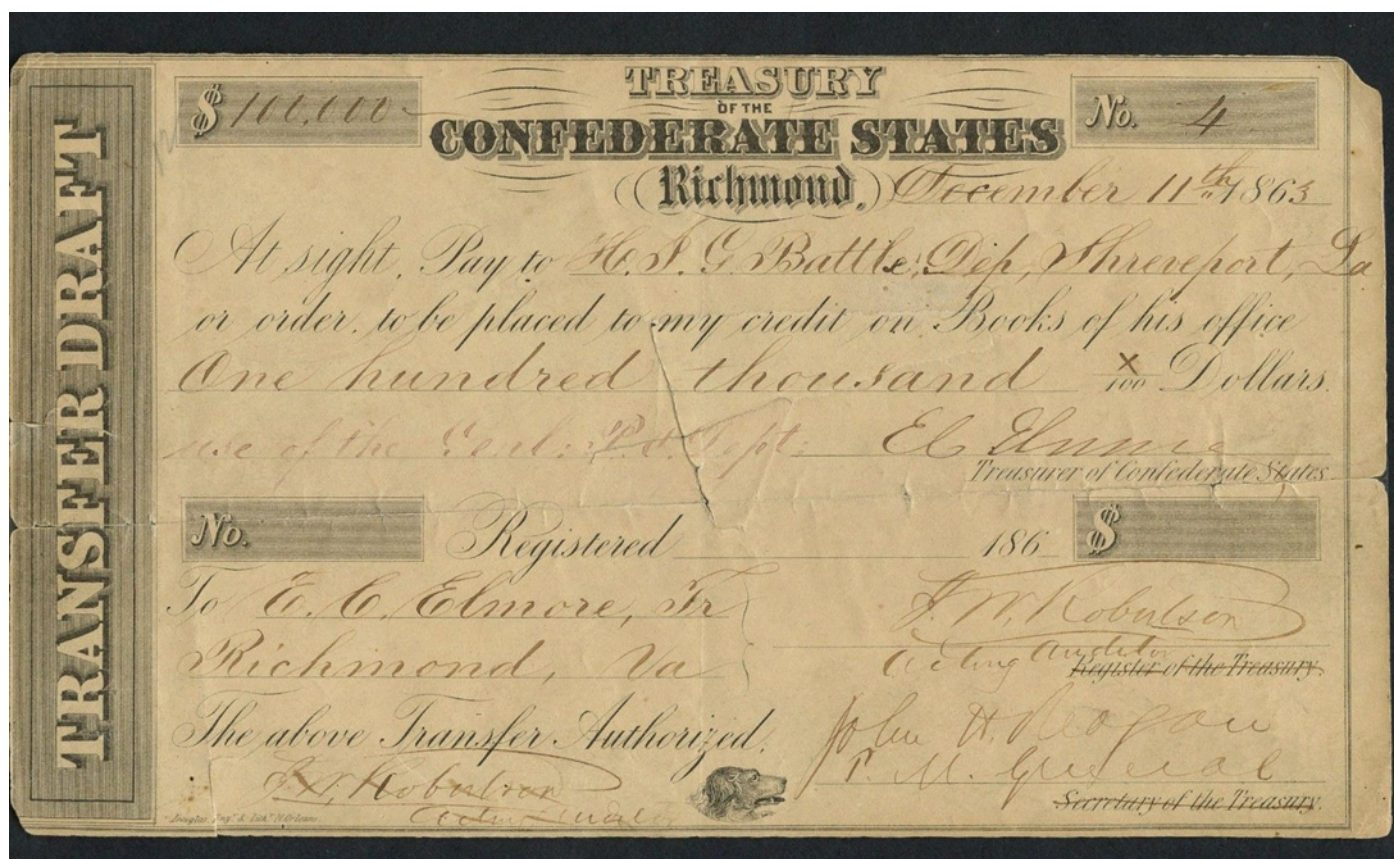 TRANSFER DRAFT
$ 100,000
TREASURY
OF THE
CONFEDERATE STATES
No. 4
Richmond, December 11th 1863
At sight, Pay to H. T. G. Battle, Dep, Shreveport, La
or order, to be placed to my credit on Books of his office
One hundred thousand x/100 Dollars.
use of the Genl: P.O. Dept: E C Elmore
Treasurer of Confederate States
No. Registered 186 $
To E. C. Elmore, Tr
Richmond, Va
J. W. Robertson
Acting Auditor
Register of the Treasury.
The above Transfer Authorized.
John H. Reagan
P. M. General
Secretary of the Treasury.
J. W. Robertson
Douglas, Eng.r & Lith.r N. Orleans.